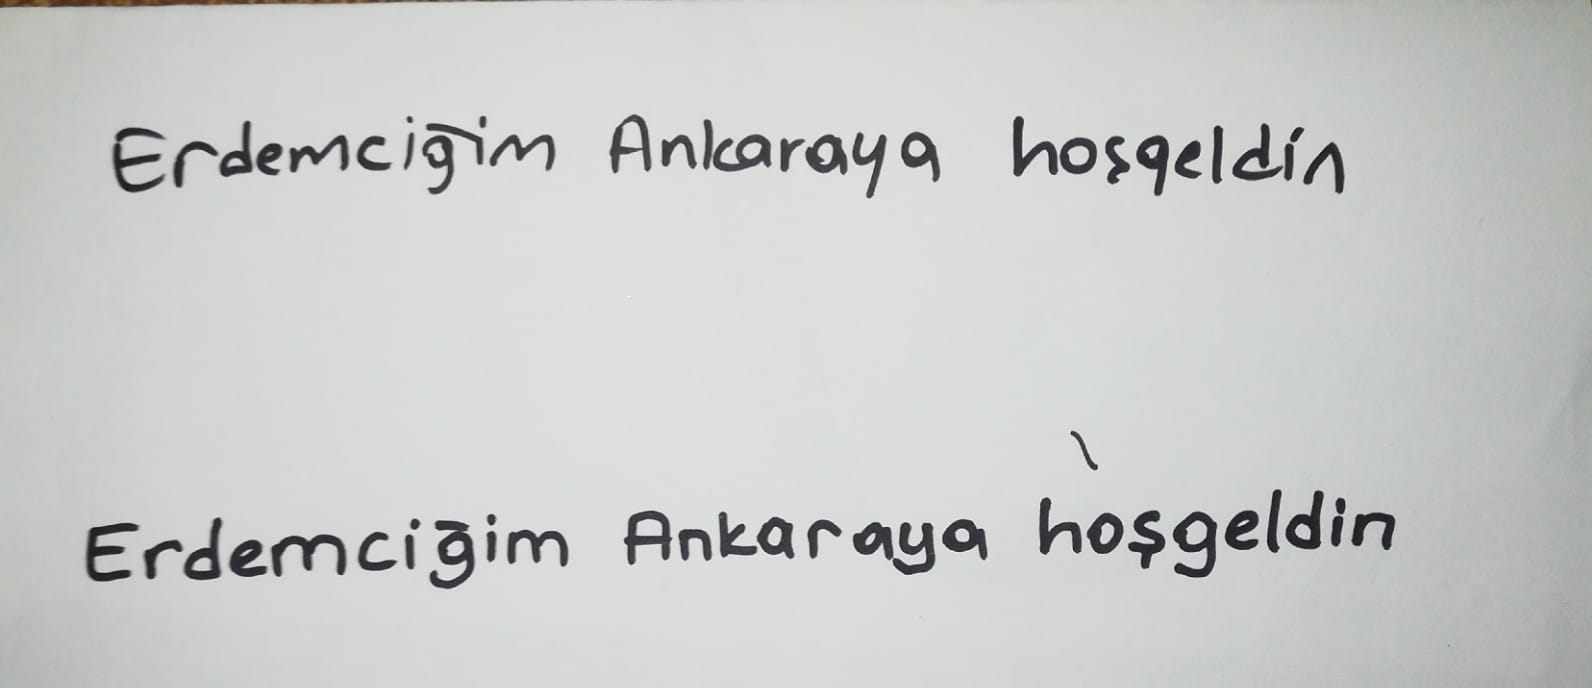 Erdemciğim Ankaraya hoşgeldin
Erdemciğim Ankaraya hoşgeldin